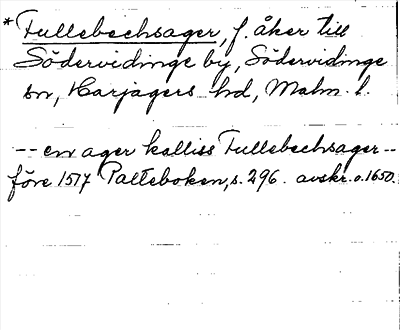 *Fullebechsager, f. åker till
Södervidinge by, Södervidinge
sn, Harjagers hd, Malm. l.
-- en ager kalliss Fullebechsager --
före 1517 Palteboken, s. 296. avskr. o. 1650.